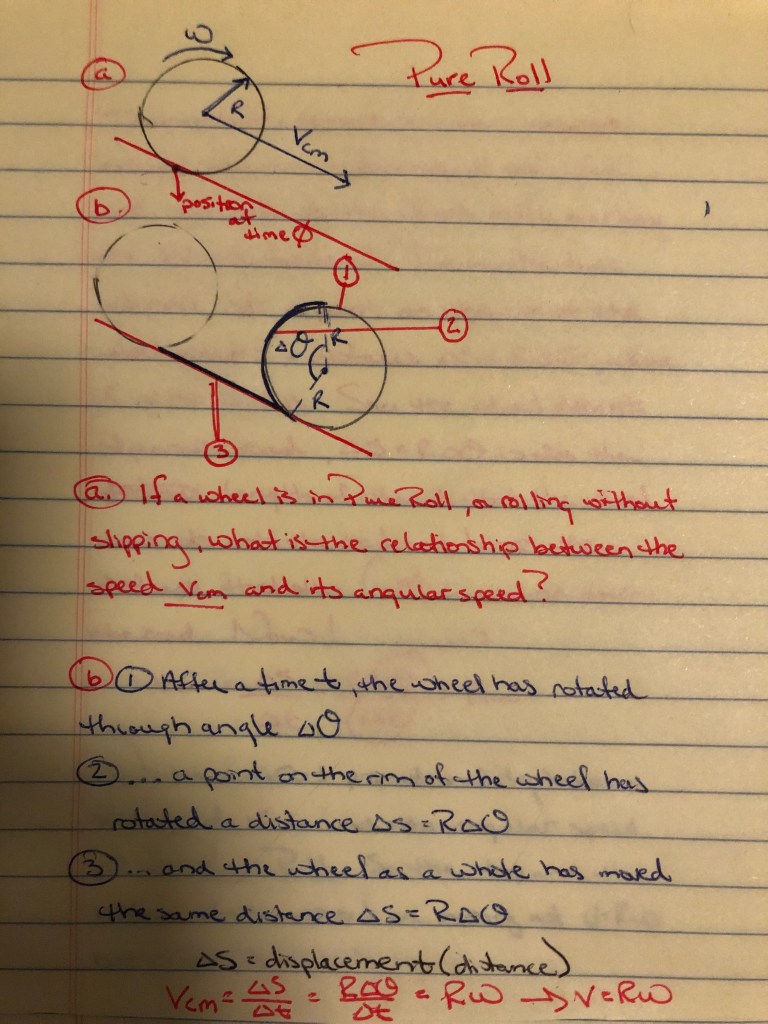 Pure Roll
a
ω
R
Vcm
position
at
time ∅
b.
1
2
Δθ
R
R
3
a. If a wheel is in Pure Roll, or rolling without
slipping, what is the relationship between the
speed Vcm and its angular speed?
b 1 After a time t, the wheel has rotated
through angle Δθ
2 ... a point on the rim of the wheel has
rotated a distance Δs = RΔθ
3 ... and the wheel as a whole has moved
the same distance Δs = RΔθ
Δs = displacement (distance)
Vcm = Δs/Δt = RΔθ/Δt = Rω → V = Rω